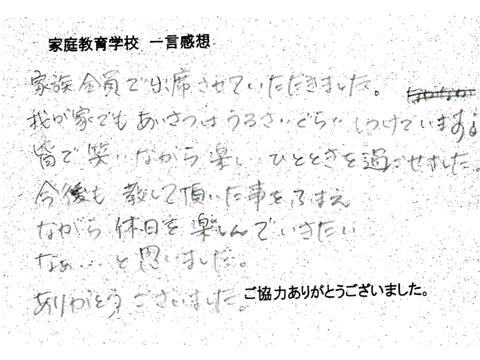 家庭教育学校 一言感想
家族全員で出席させていただきました。
我が家でもあいさつはうるさいぐらいしつけています。
皆で笑いながら楽しいひとときを過ごせました。
今後も教えて頂いた事をふまえ
ながら休日を楽しんでいきたい
なぁ…と思いました。
ありがとうございました。
ご協力ありがとうございました。